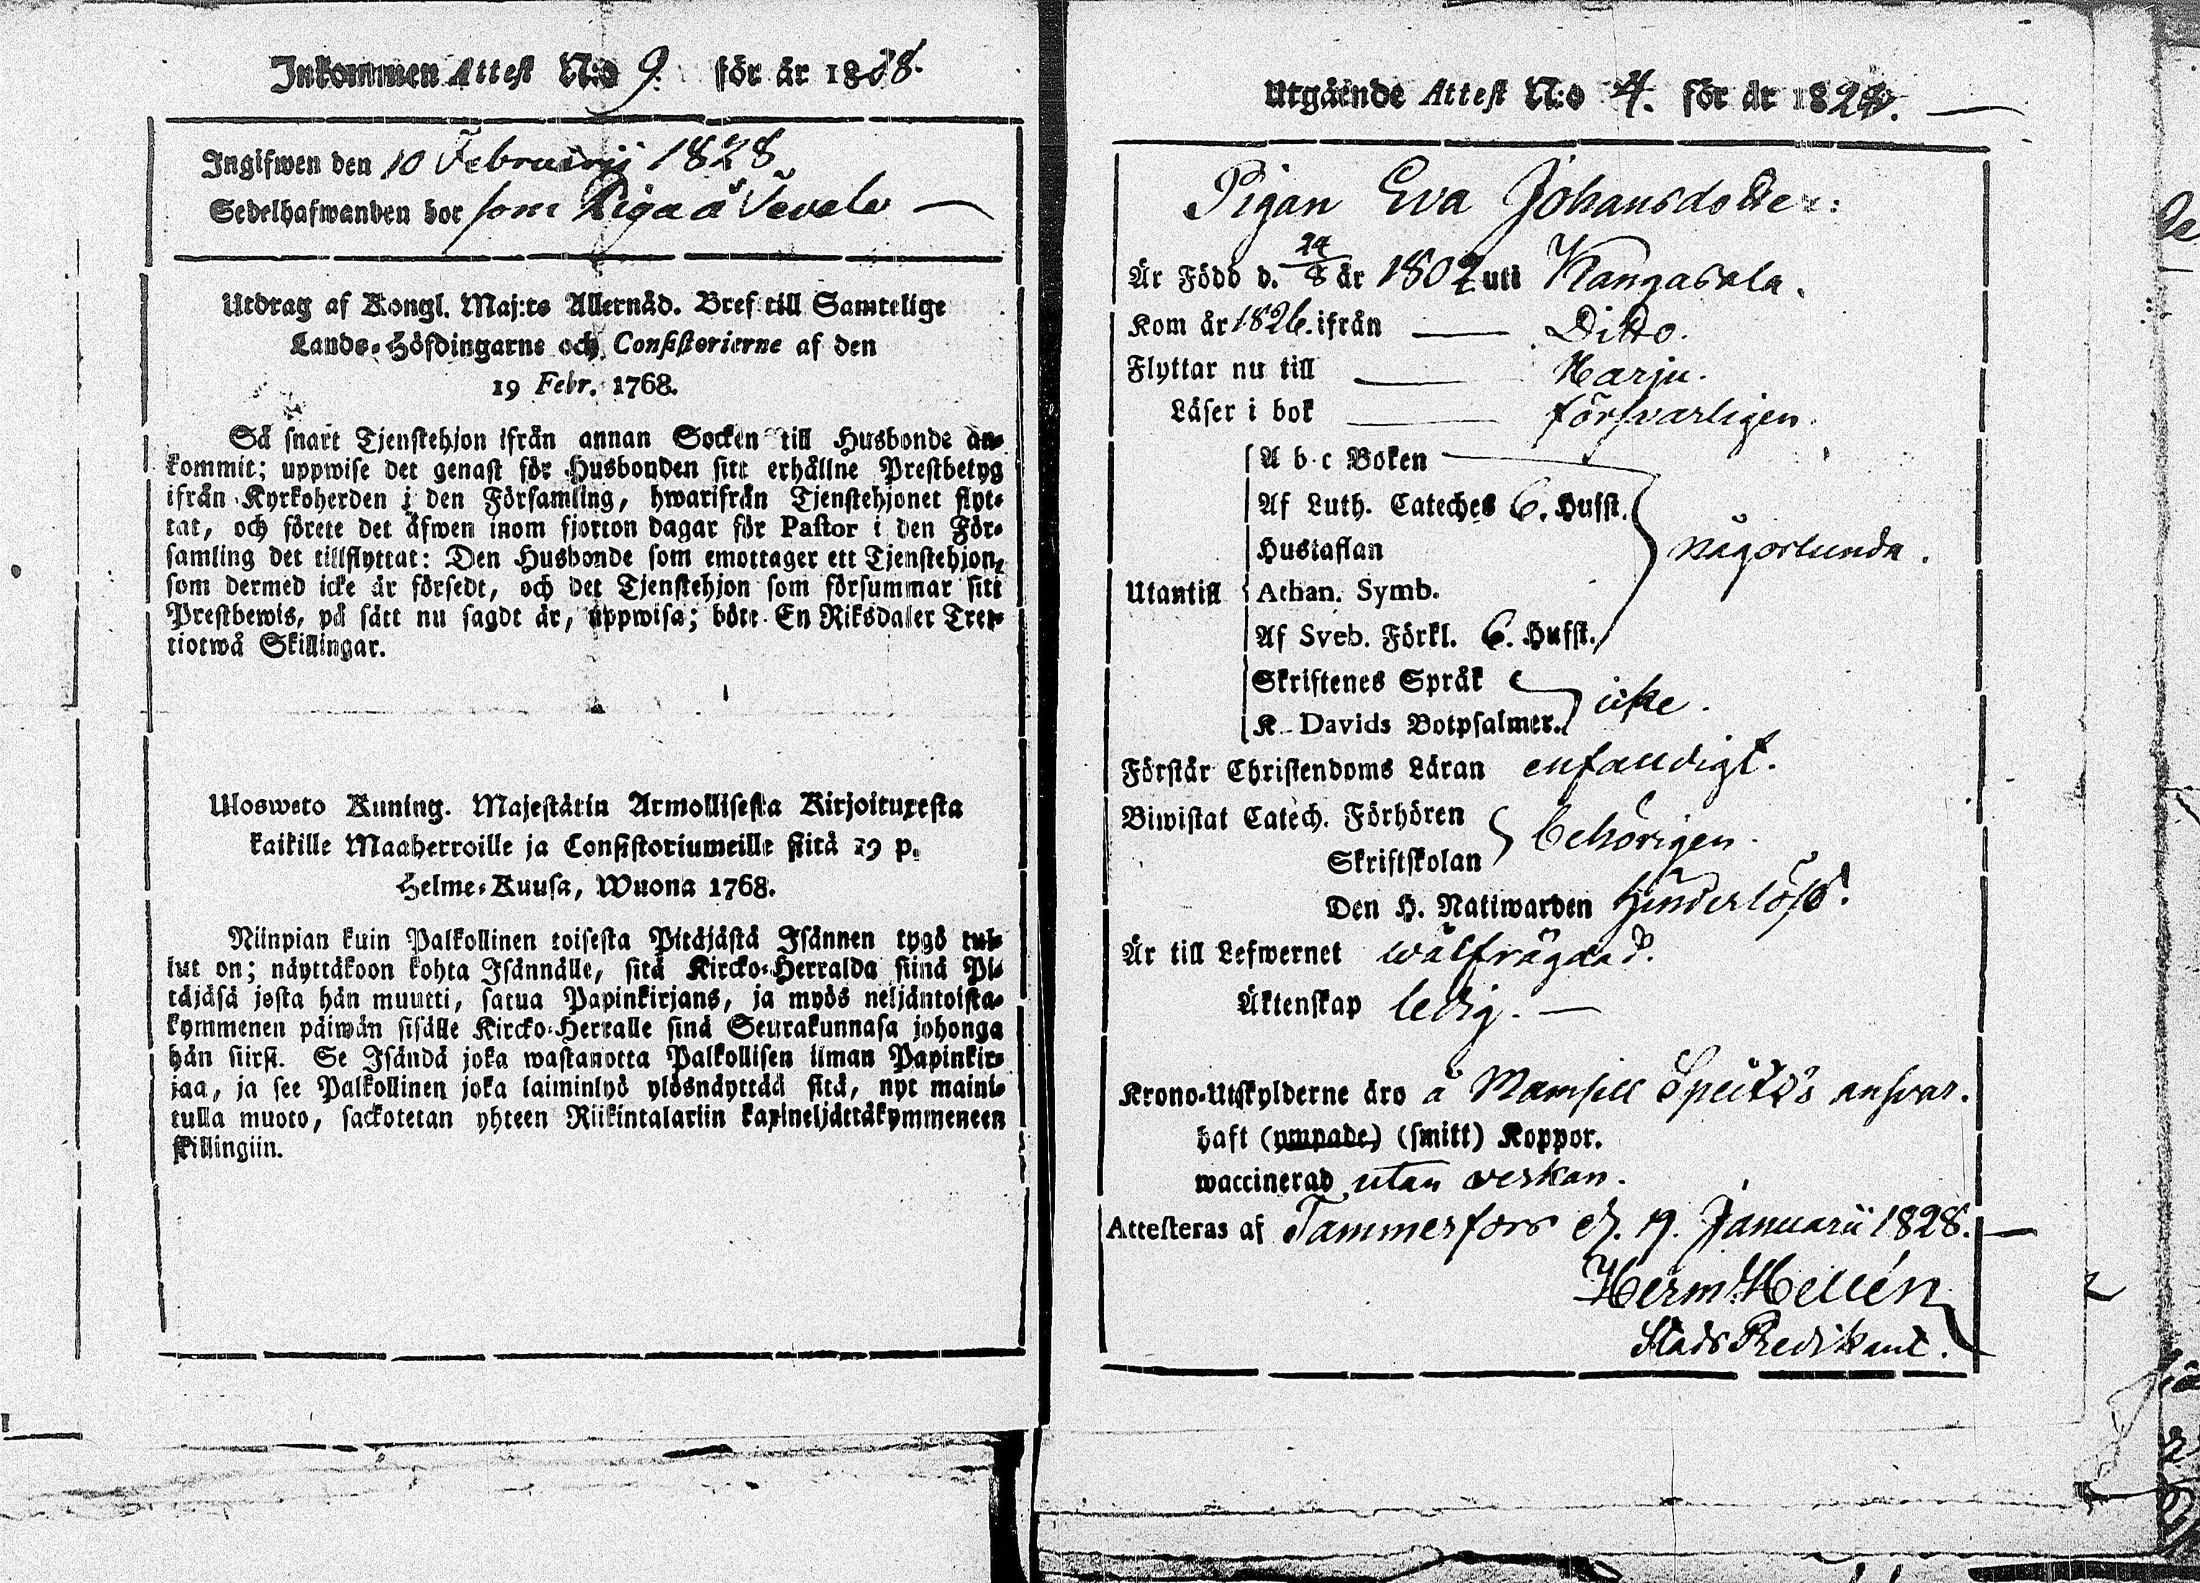 Inkommen Attest N:o 9. för år 1828.
Ingifwen den 10 Februarii 1828
Sedelhafwanden bor som Piga å Tevala
Utdrag af Kongl. Maj:ts Allernåd. Bref till Samtelige
Lands-Höfdingarne och Consistorierne af den
19 Febr. 1768.
Så snart Tjenstehjon ifrån annan Socken till Husbonde an-
kommit; uppwise det genast för Husbonden sitt erhållne Prestbetyg
ifrån Kyrkoherden i den Församling, hwarifrån Tjenstehjonet flyt-
tat, och förete det äfwen inom fjorton dagar för Pastor i den För-
samling det tillflyttat: Den Husbonde som emottager ett Tjenstehjon,
som dermed icke är försedt, och det Tjenstehjon som försummar sitt
Prestbewis, på sätt nu sagdt är, uppwisa; böte En Riksdaler Tret-
tiotwå Skillingar.
Ulosweto Kuning. Majestätin Armollisesta Kirjoituxesta
kaikille Maaherroille ja Consistoriumeille siitä 19 p.
Helme-Kuusa, Wuona 1768.
Niinpian kuin Palkollinen toisesta Pitäjästä Isännen tygö tul-
lut on; näyttäkoon kohta Isännälle, sitä Kircko-Herralda siinä Pi-
täjäsä josta hän muutti, satua Papinkirjans, ja myös neljäntoista-
kymmenen päiwän sisälle Kircko-Herralle sinä Seurakunnasa johonga
hän siirsi. Se Isändä joka wastanotta Palkollisen ilman Papinkir-
jaa, ja see Palkollinen joka laiminlyö ylösnäyttää sitä, nyt maini-
tulla muoto, sackotetan yhteen Riikintalariin kaxineljättäkymmeneen
skillingiin.
Utgående Attest N:o 4. för år 1828.
Pigan Eva Johansdotter:
Är Född d. 24/8 år 1802 uti Kangasala.
Kom år 1826. ifrån Ditto.
Flyttar nu till Harju.
Läser i bok försvarligen.
A b c Boken
Af Luth. Cateches 6. Hufst.
Hustaflan någorlunda.
Utantill Athan. Symb.
Af Sveb. Förkl. 6. Hufst.
Skriftenes Språk
K. Davids Botpsalmer. icke.
Förstår Christendoms Läran enfaldigt.
Biwistat Catech. Förhören
Skriftskolan behörigen.
Den H. Nattwarden hinderlöst.
Är till Lefwernet wälfrägdad.
Äktenskap ledig.
Krono-Utskylderne äro å Mamsell ansvar.
haft (ympade) (smitt) Koppor.
waccinerad utan verkan.
Attesteras af Tammerfors d. 19. Januarii 1828.
Herm Hellén
Stads Predikant.